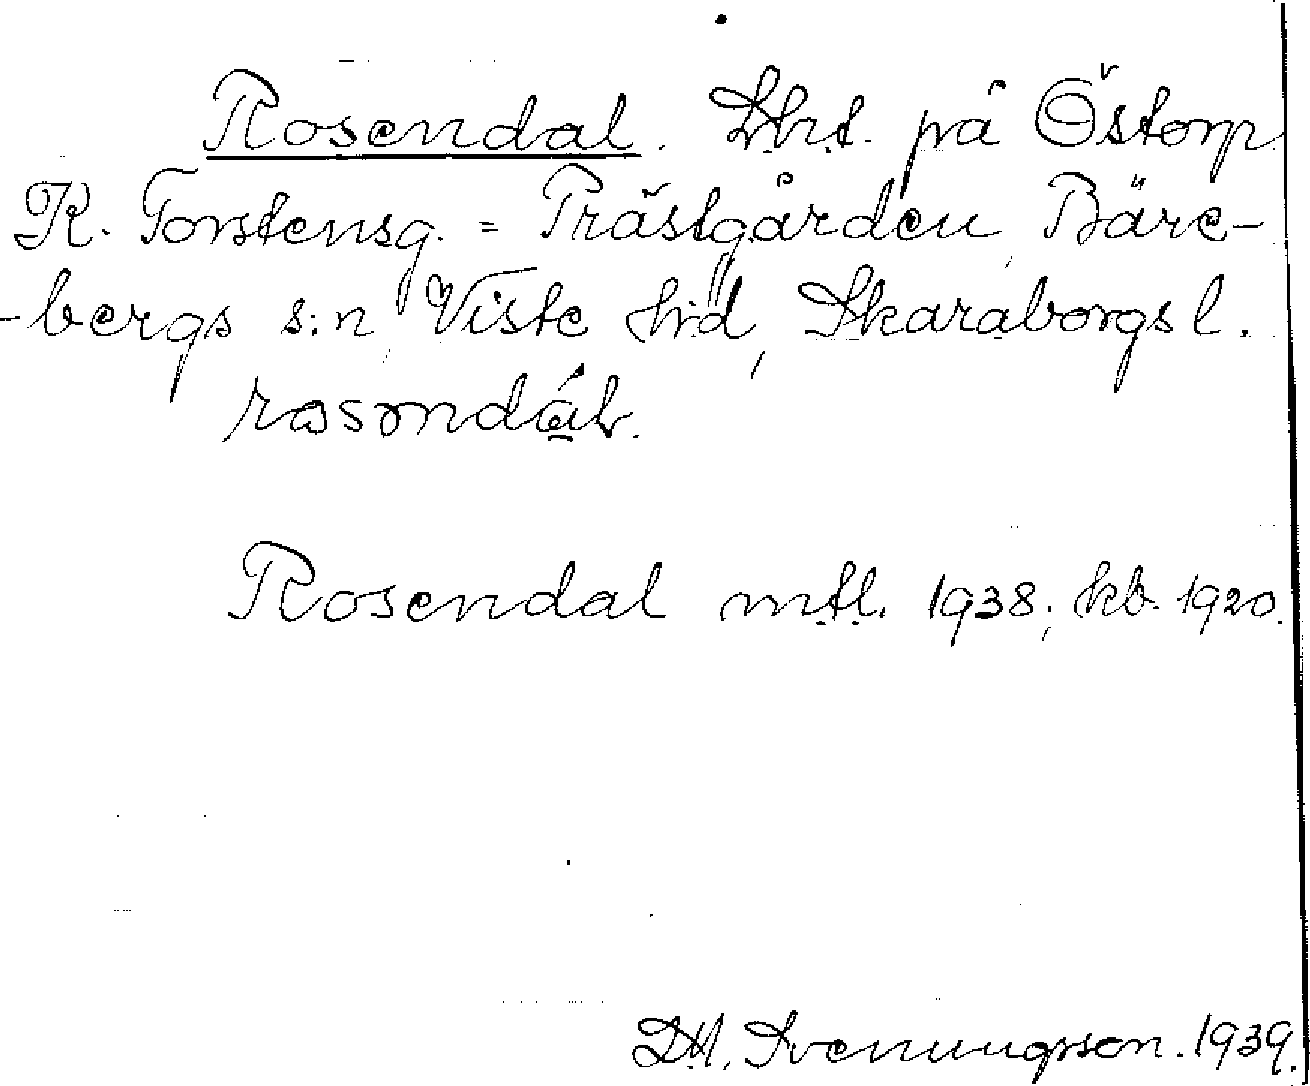 Rosendal. Lht. på Östorp
K. Torstensg. = Prästgården, Bäre-
-bergs s:n, Viste hd, Skaraborgs l.
rosondáb.
Rosendal mtl. 1938; kb. 1920.
D.A. Svenungsson. 1939.